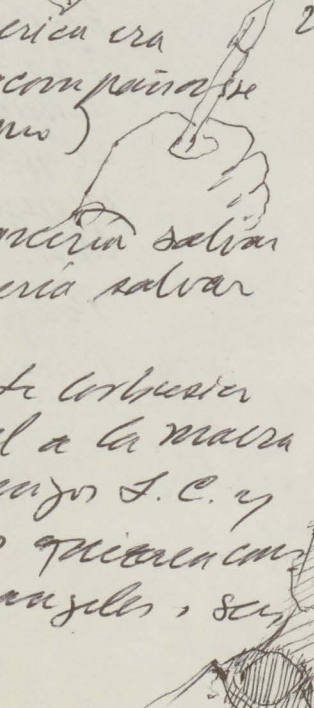 erica era
acompañarse
mo)
2
parecería salvar
ería salvar
te Corbusier
l a la maera
L. C. y
quieren con
angeles, ser